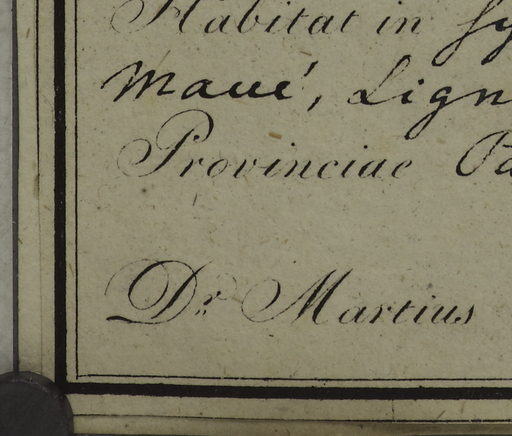 Habitat in sy
Maué, Lign
Provinciae Pa
Dr. Martius